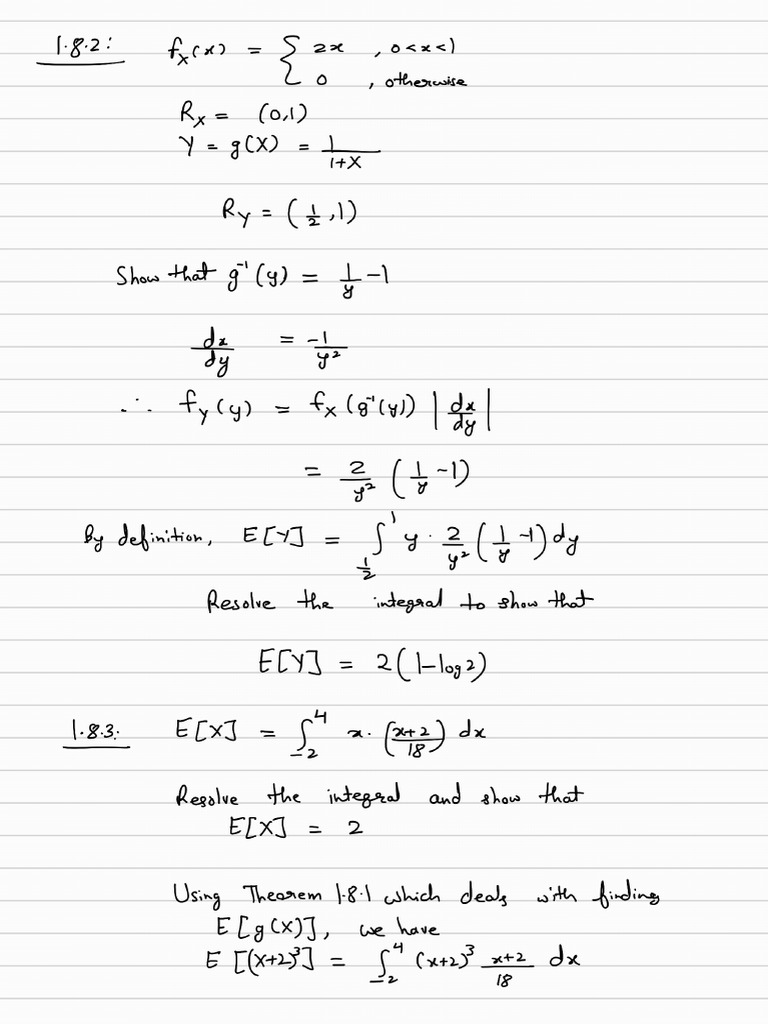 1.8.2: f_X(x) = { 2x , 0<x<1
0 , otherwise
R_X = (0,1)
Y = g(X) = 1/(1+X)
R_Y = (1/2, 1)
Show that g⁻¹(y) = 1/y - 1
dx/dy = -1/y²
∴ f_Y(y) = f_X(g⁻¹(y)) |dx/dy|
= 2/y² (1/y - 1)
By definition, E[Y] = ∫_{1/2}^{1} y · 2/y² (1/y - 1) dy
Resolve the integral to show that
E[Y] = 2(1-log2)
1.8.3: E[X] = ∫_{-2}^{4} x · ((x+2)/18) dx
Resolve the integral and show that
E[X] = 2
Using Theorem 1.8.1 which deals with finding
E[g(X)], we have
E[(X+2)³] = ∫_{-2}^{4} (x+2)³ (x+2)/18 dx